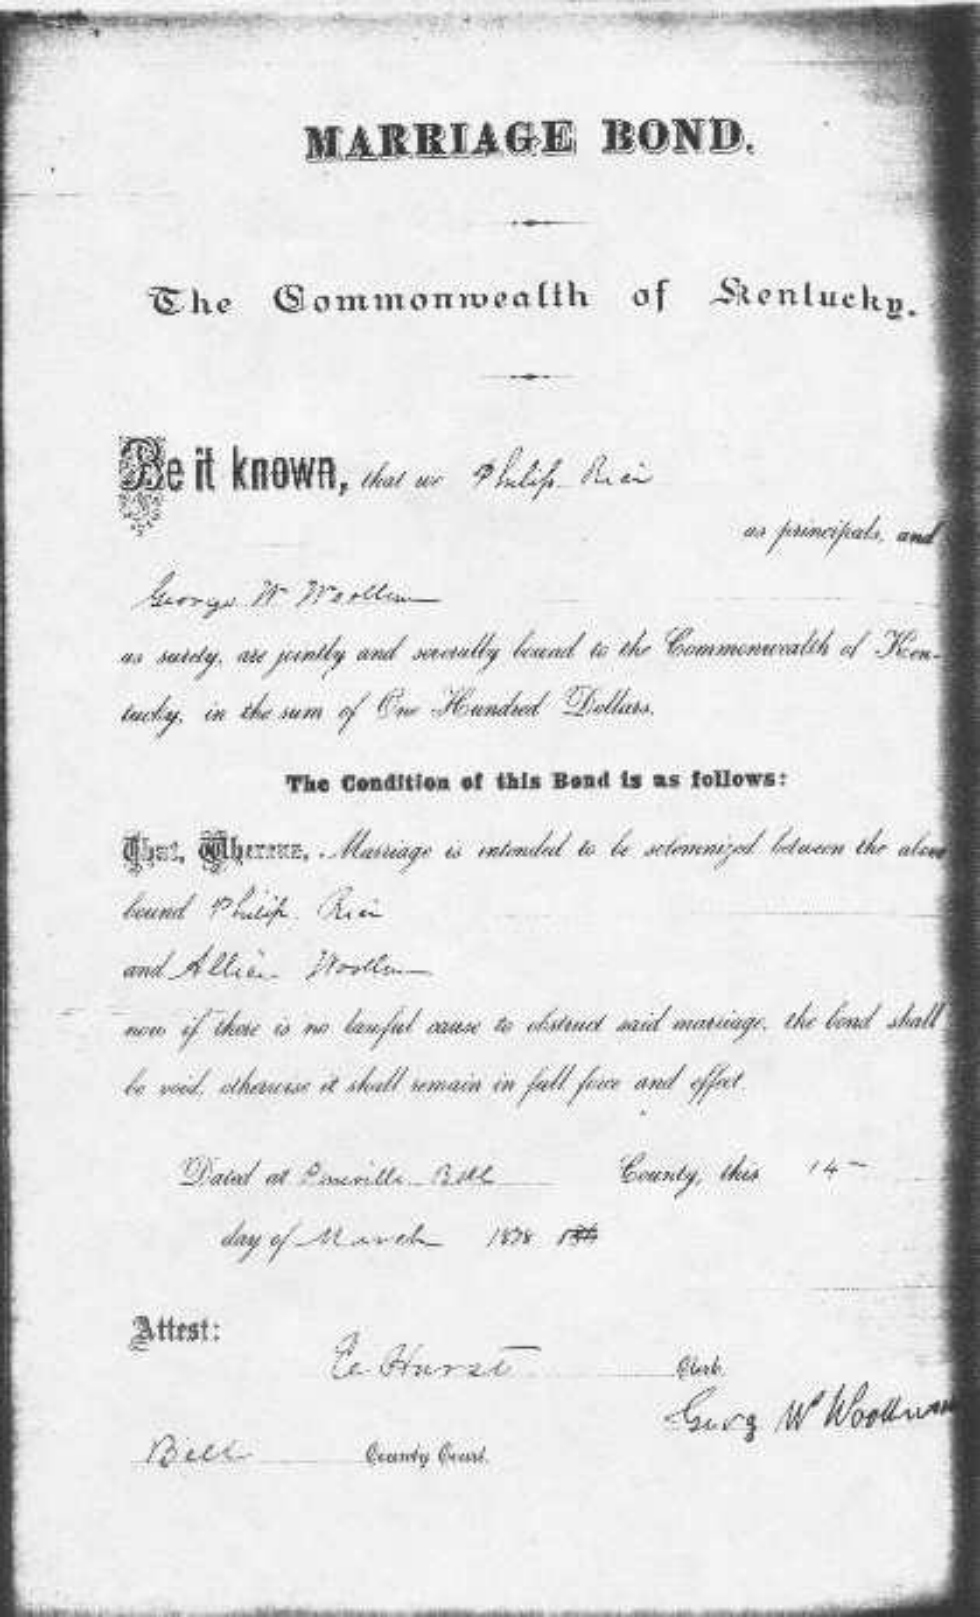 MARRIAGE BOND.
The Commonwealth of Kentucky.
Be it known, that we Philip Rice
as principals, and
George W Woollum
as surety, are jointly and severally bound to the Commonwealth of Ken-
tucky, in the sum of One Hundred Dollars.
The Condition of this Bond is as follows:
That, Whereas, Marriage is intended to be solemnized between the above
bound Philip Rice
and Woollum
now if there is no lawful cause to obstruct said marriage, the bond shall
be void, otherwise it shall remain in full force and effect.
Dated at Pineville Bell County, this 14
day of March 1878
Attest:
Hurst Clerk.
Georg W Woollum
Bell County Court.